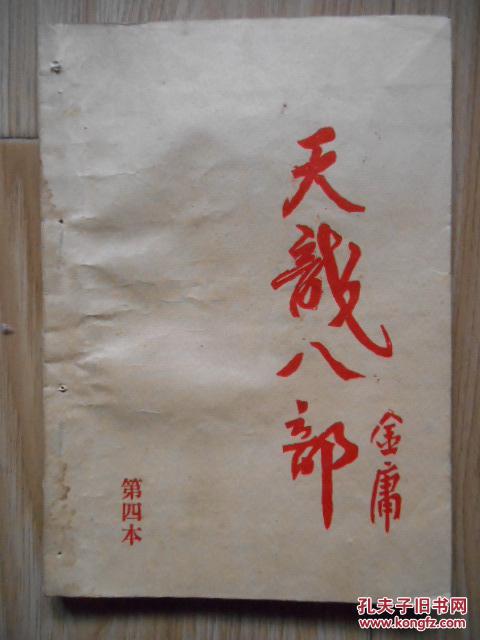 天龍八部
金庸
第四本
孔夫子旧书网
www.kongfz.com